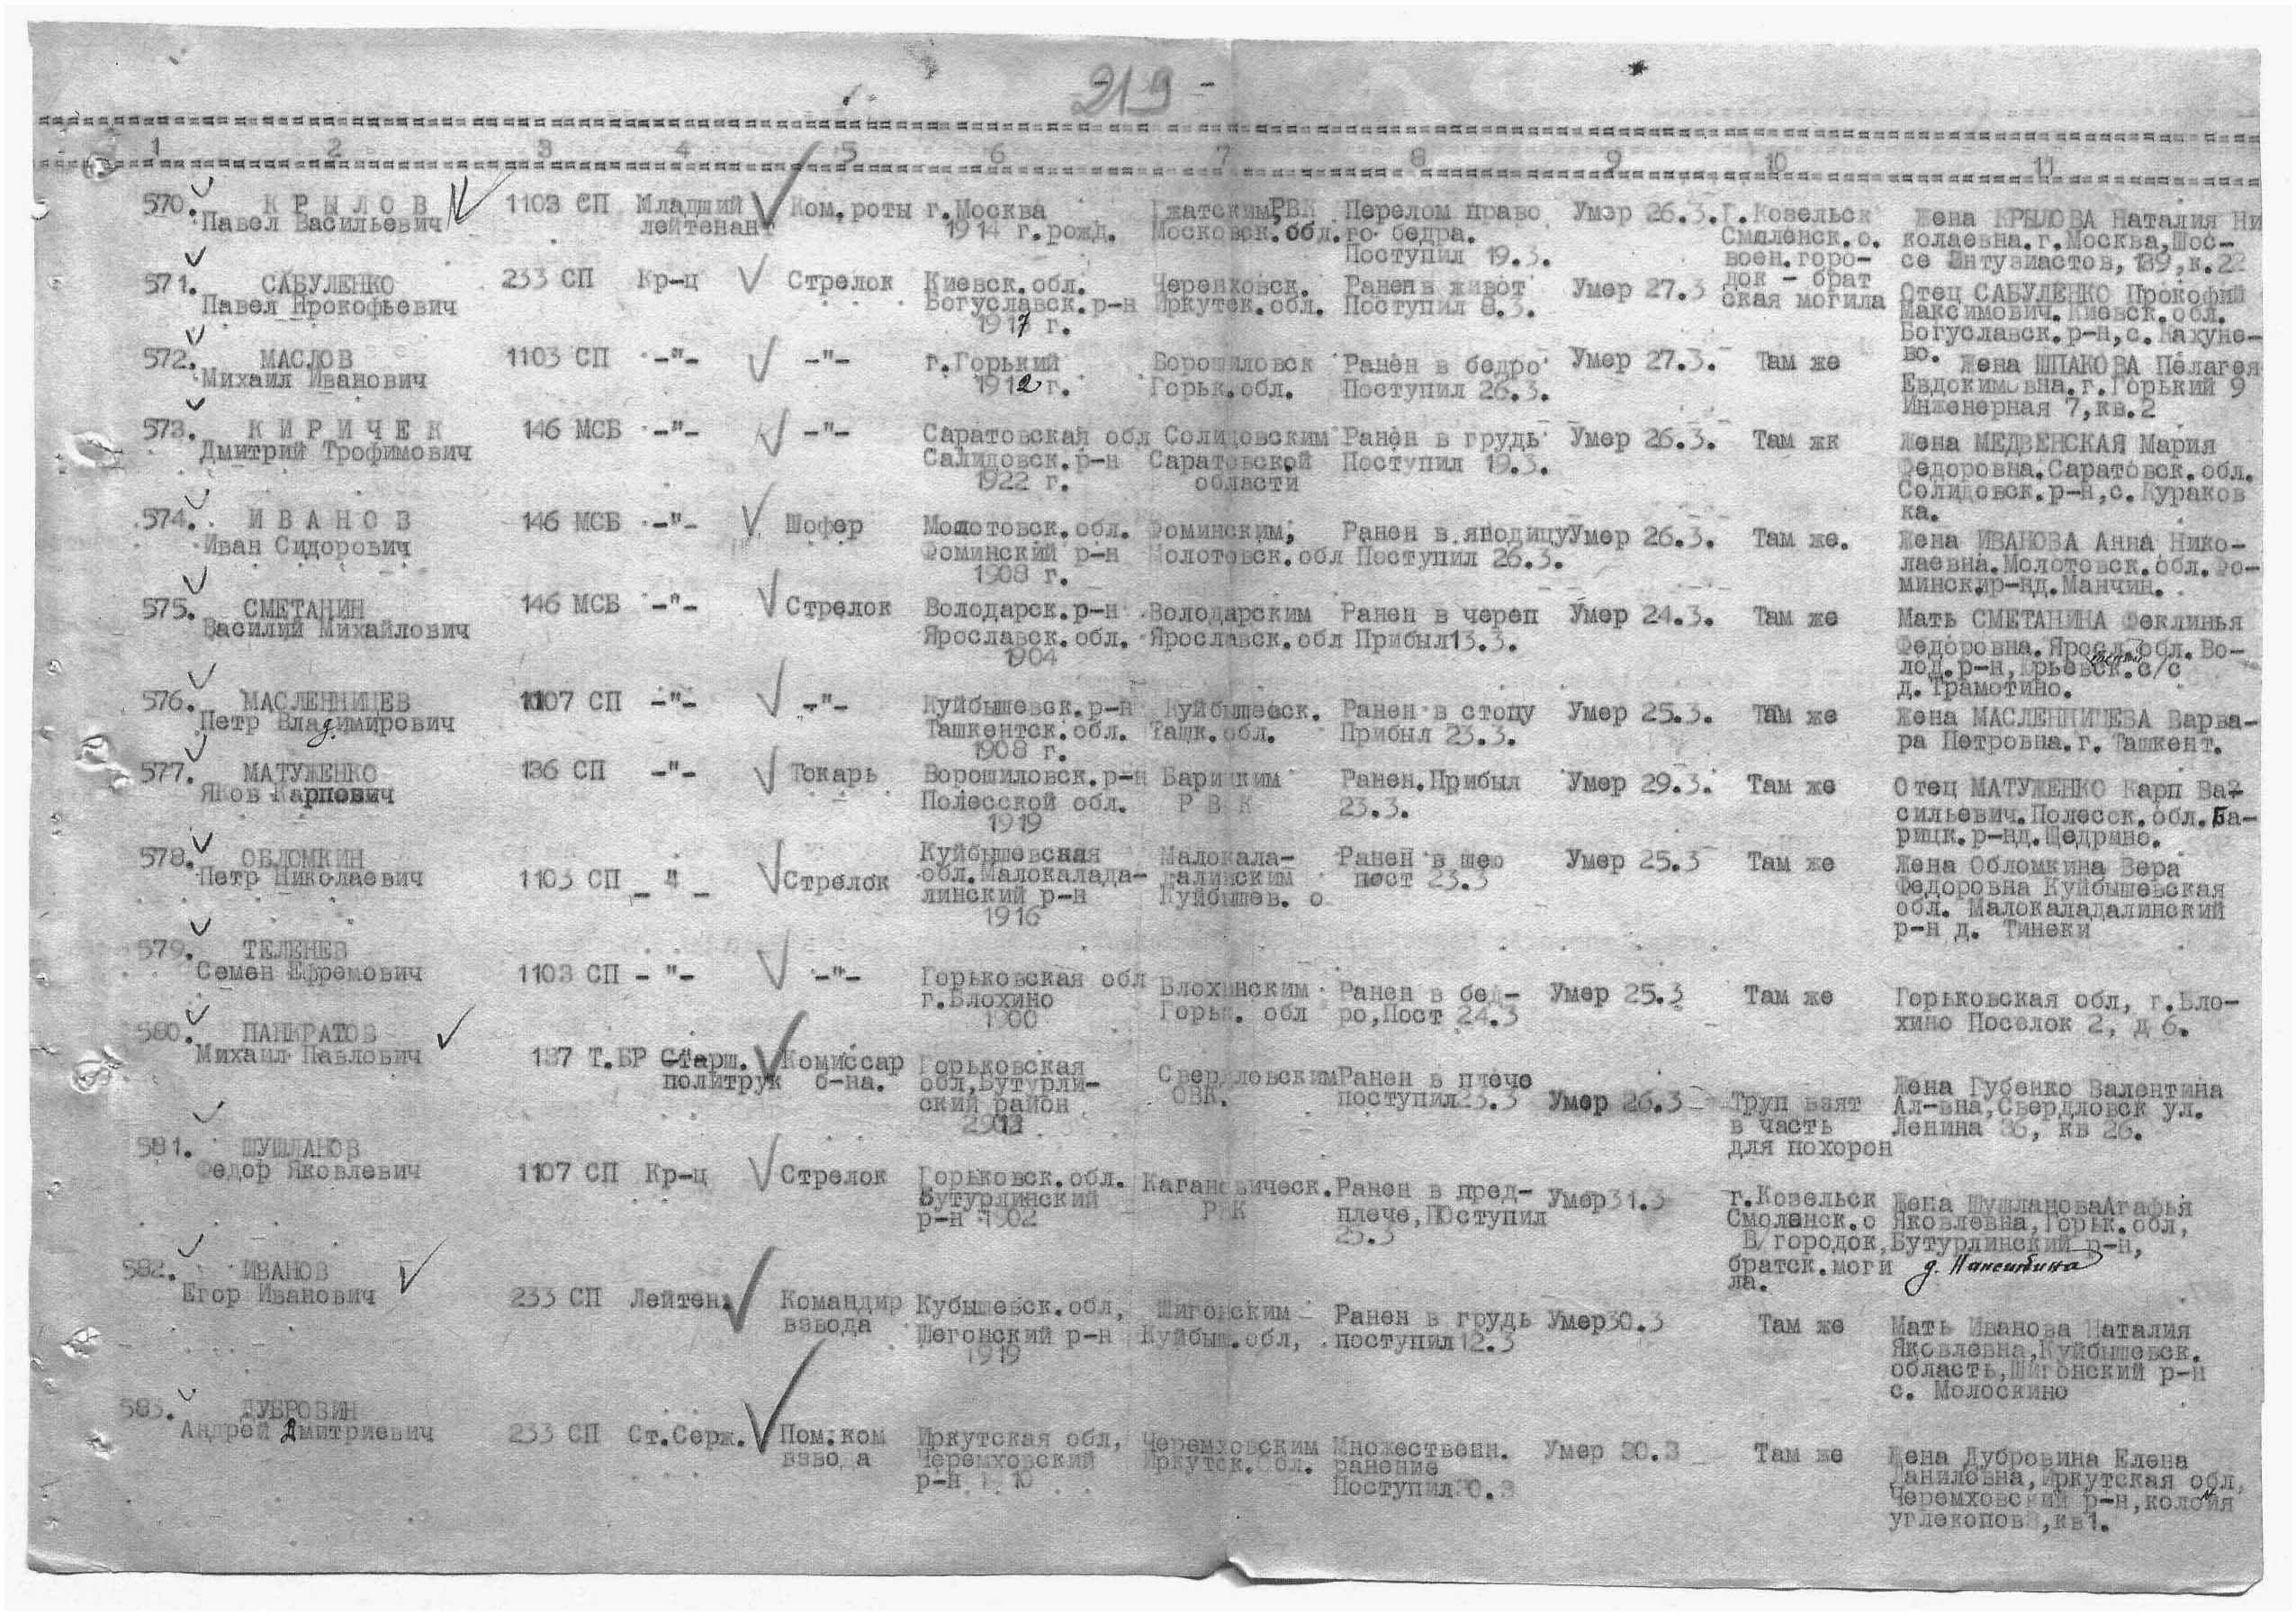 219 -
1 2 3 4 5 6 7 8 9 10 11
570. К Р Ы Л О В 1103 СП Младший Ком.роты г.Москва Гжатским,РВК Перелом право Умэр 26.3. Г.Козельск Жена КРЫЛОВА Наталия Ни
Павел Васильевич лейтенант 1914 г.рожд. Московск.обл. го бедра. Смоленск.о. колаевна.г.Москва,Шос-
Поступил 19.3. воен.горо- се Энтузиастов, 139,к.22
571. САБУЛЕНКО 233 СП Кр-ц Стрелок Киевск.обл. Черенховск. Ранен в живот Умер 27.3 док - брат Отец САБУЛЕНКО Прокофий
Павел Прокофьевич Богуславск.р-н Иркутск.обл. Поступил 8.3. ская могила Максимович.Киевск.обл.
1917 г. Богуславск.р-н,с.Бахуне-
572. МАСЛОВ 1103 СП -"- -"- г.Горький Ворошиловск Ранен в бедро Умер 27.3. Там же во. Жена ШПАКОВА Пелагея
Михаил Иванович 1912 г. Горьк.обл. Поступил 26.3. Евдокимовна.г.Горький 9
Инженерная 7,кв.2
573. К И Р И Ч Е К 146 МСБ -"- -"- Саратовская обл Солидовским Ранен в грудь Умер 26.3. Там жк Жена МЕДВЕНСКАЯ Мария
Дмитрий Трофимович Салидовск.р-н Саратовской Поступил 19.3. Федоровна.Саратовск.обл.
1922 г. области Солидовск.р-н,с.Кураков
ка.
574. И В А Н О В 146 МСБ -"- Шофер Молотовск.обл. Фоминским, Ранен в ягодицу Умер 26.3. Там же. Жена ИВАНОВА Анна Нико-
Иван Сидорович Фоминский р-н Молотовск.обл Поступил 26.3. лаевна.Молотовск.обл.Фо-
1908 г. минск.р-нд.Манчин.
575. СМЕТАНИН 146 МСБ -"- Стрелок Володарск.р-н Володарским Ранен в череп Умер 24.3. Там же Мать СМЕТАНИНА Феклинья
Василий Михайлович Ярославск.обл. Ярославск.обл Прибыл13.3. Федоровна.Яросл.обл.Во-
1904 лод.р-н,Юрьевск.с/с
д.Трамотино.
576. МАСЛЕННИЦЕВ 1107 СП -"- -"- Куйбышевск.р-н Куйбышевск. Ранен в стопу Умер 25.3. Там же Жена МАСЛЕННИЦЕВА Варва-
Петр Владимирович Ташкентск.обл. Ташк.обл. Прибыл 23.3. ра Петровна.г.Ташкент.
1908 г.
577. МАТУЖЕНКО 136 СП -"- Токарь Ворошиловск.р-н Барицким Ранен.Прибыл Умер 29.3. Там же Отец МАТУЖЕНКО Карп Ва-
Яков Карпович Полесской обл. Р В К 23.3. сильевич.Полесск.обл.Ба-
1919 рицк.р-нд.Щедрино.
578. ОБЛОМКИН Куйбышевская Малокала- Ранен в шею Умер 25.3 Там же Жена Обломкина Вера
Петр Николаевич 1103 СП - " - Стрелок обл.Малокалада- далинским пост 23.3 Федоровна Куйбышевская
линский р-н Куйбышев. о обл. Малокаладалинский
1916 р-н д. Тинеки
579. ТЕЛЕНЕВ
Семен Ефремович 1103 СП - "- -"- Горьковская обл Блохинским Ранен в бед- Умер 25.3 Там же Горьковская обл, г.Бло-
г.Блохино Горьк. обл ро,Пост 24.3 хино Поселок 2, д 6.
1900
580. ПАНКРАТОВ
Михаил Павлович 137 Т.БР Старш. Комиссар Горьковская Свердловским Ранен в плечо Умер 26.3 Жена Губенко Валентина
политрук б-на. обл,Бутурли- ОВК. поступил23.3 Труп взят Ал-вна,Свердловск ул.
ский район в часть Ленина 36, кв 26.
для похорон
581. ШУШЛАНОВ
Федор Яковлевич 1107 СП Кр-ц Стрелок Горьковск.обл. Кагановическ. Ранен в пред- Умер31.3 г.Козельск Жена ШушлановаАгафья
Бутурлинский РВК плече,ПОступил Смоленск.о Яковлевна,Горьк.обл,
р-н 1902 23.3 В/городок, Бутурлинский р-н,
братск.моги
ла.
582. ИВАНОВ
Егор Иванович 233 СП Лейтен. Командир Кубышевск.обл, Шигонским Ранен в грудь Умер30.3 Там же Мать Иванова Наталия
взвода Шегонский р-н Куйбыш.обл, поступил12.3 Яковлевна,Куйбышевск.
1919 область,Шигонский р-н
с. Молоскино
583. ДУБРОВИН
Андрей Дмитриевич 233 СП Ст.Серж. Пом.ком Иркутская обл, Черемховским Множественн. Умер 30.3 Там же Жена Дубровина Елена
взвода Черемховский Иркутск.Обл. ранение Даниловна,Иркутская обл,
р-н 1910 Поступил20.3 Черемховский р-н,колония
углекопов3,кв1.